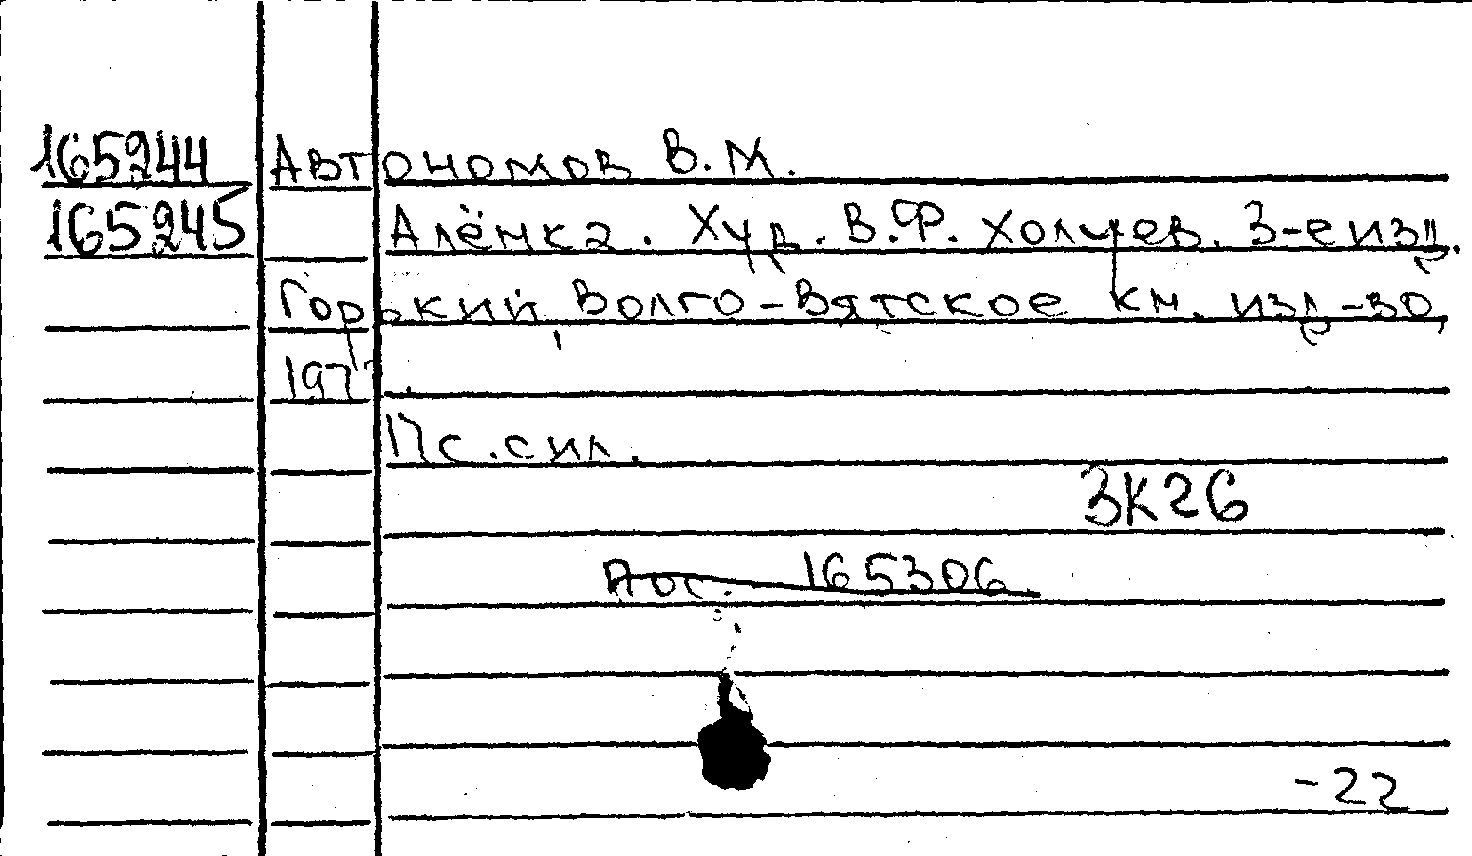 165244 Автономов В. М.
165245 Алёнка. Худ. В.Ф. Холуев. 3-е изд.
Горький, Волго-Вятское кн. изд-во,
1977.
17с. с ил.
ЗК26
165306
-22